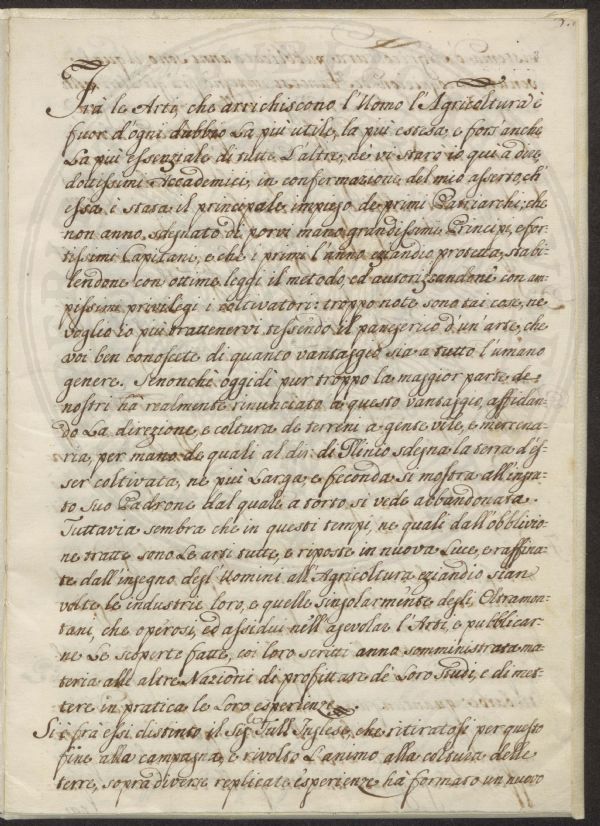 Frà le Arti, che arrichiscono l'Uomo l'Agricoltura è
fuor d'ogni dubbio La più utile, la più estesa, e fors'anche
La più essenziale di tutte L'altre, nè vi starò io qui a dire
dottissimi Accademici, in confermazione del mio asserto, ch'
essa è stata il principale impiego de primi Patriarchi, che
non anno sdegnato di porvi mano grandissimi Principi, e for-
tissimi Capitani, e che i primi l'anno eziandio protetta, stabi-
lendone con ottime leggi il metodo, ed autorizzandone con am-
pissimi privilegi i coltivatori: troppo note sono tai cose, ne
voglio io più trattenervi tessendo il panegirico d'un'arte, che
voi ben conoscete di quanto vantaggio sia a tutto l'umano
genere. Senonchè oggidì pur troppo la maggior parte de-
nostri hà realmente rinunciato a questo vantaggio, affidan-
do La direzione, e coltura de terreni a gente vile, e mercena-
ria, per mano de quali al dir di Plinio sdegna la terra d'es-
ser coltivata, ne più Larga, e feconda si mostra all'ingra-
to suo Padrone dal quale a torto si vede abbandonata.
Tuttavia sembra che in questi tempi, ne quali dall'obblivio-
ne tratte sono Le arti tutte, e riposte in nuova Luce, e raffina-
te dall'ingegno degl'Uomini all'Agricoltura eziandio sian
volte le industrie loro, e quelle singolarmente degli Oltramon-
tani, che operosi, ed assidui nell'agevolar l'Arti, e pubblicar-
ne Le scoperte fatte, coi loro scritti anno somministrata ma-
teria alle altre Nazioni di profittare de Loro studi, e di met-
tere in pratica le Loro esperienze
Si è frà essi distinto il Sig.r Tull Inglese, che ritiratosi per questo
fine alla campagna, e rivolto L'animo alla coltura delle
terre, sopra diverse replicate esperienze hà formato un nuovo